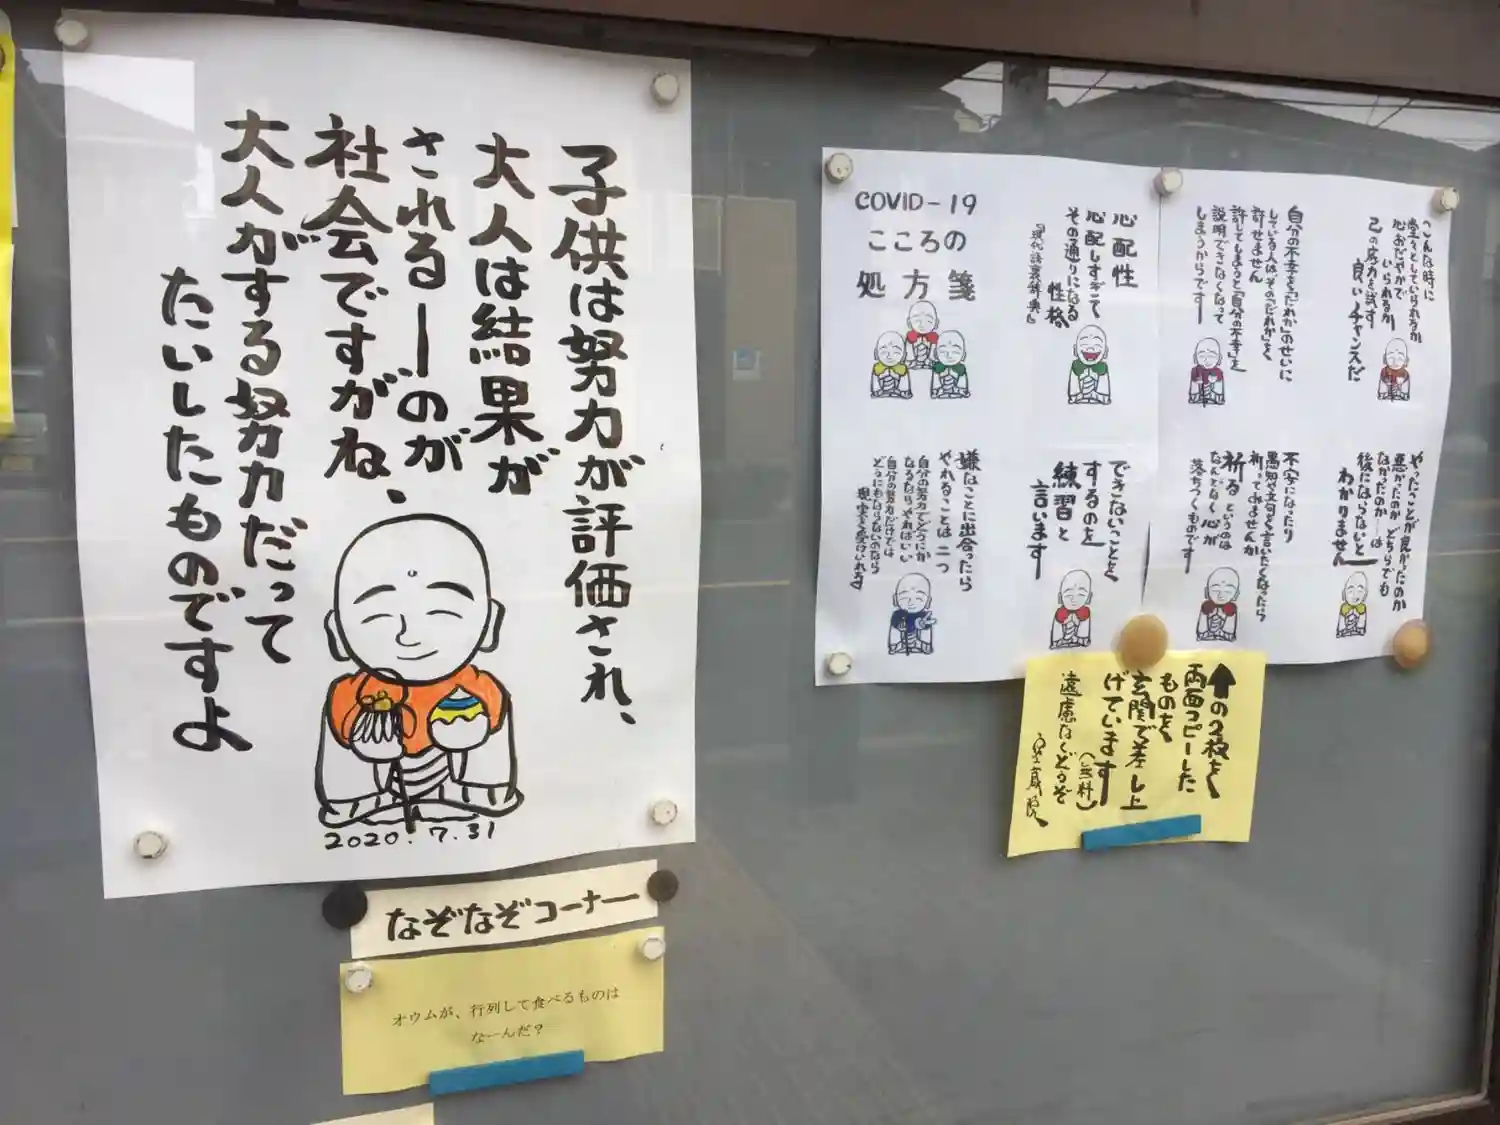 子供は努力が評価され、
大人は結果が
されるーのが
社会ですがね、
大人がする努力だって
たいしたものですよ
2020.7.31
なぞなぞコーナー
オウムが、行列して食べるものは
なーんだ?
COVID-19
こころの
処方箋
心配性
心配しすぎて
その通りになる
性格
自分の不幸を「だれか」のせいに
している人は、その「だれか」を
許せません
許してしまうと「自分の不幸」を
説明できなくなって
しまうからです
こんな時に
堂々としていられるか
心おだやかで
いられるか
己の底力を試す
良いチャンスだ
嫌なことに出合ったら
やれることは二つ
自分の努力でどうにか
なるならやればいい
自分の努力だけでは
どうにもならないのなら
現実を受けいれる
できないことを
するのを
練習と
言います
不安になったり
愚知や文句を言いたくなったら
祈ってみませんか
祈るというのは
なんとなく心が
落ちつくものです
やったことが良かったのか
悪かったのかどちらでも
なかったのか…は
後にならないと
わかりません
⬆の2枚を
両面コピーした
ものを
玄関で差し上
げています
(無料)
遠慮なくどうぞ